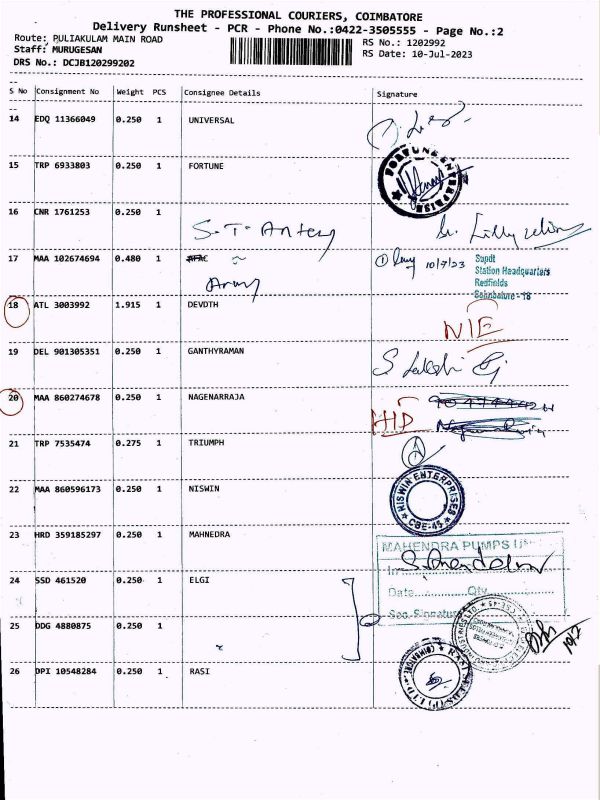 THE PROFESSIONAL COURIERS, COIMBATORE
Delivery Runsheet - PCR - Phone No.:0422-3505555 - Page No.:2
Route: PULIAKULAM MAIN ROAD
RS No.: 1202992
Staff: MURUGESAN
RS Date: 10-Jul-2023
DRS No.: DCJB120299202
S No Consignment No Weight PCS Consignee Details Signature
14 EDQ 11366049 0.250 1 UNIVERSAL
15 TRP 6933803 0.250 1 FORTUNE
FORTUNE ENTERPRISE
16 CNR 1761253 0.250 1
S.T. Antony
17 MAA 102674694 0.480 1
Army
10/7/23
Supdt
Station Headquarters
Redfields
Coimbatore - 18
18 ATL 3003992 1.915 1 DEVDTH
N/E
19 DEL 901305351 0.250 1 GANTHYRAMAN
20 MAA 860274678 0.250 1 NAGENARRAJA
HD
21 TRP 7535474 0.275 1 TRIUMPH
22 MAA 860596173 0.250 1 NISWIN
NISWIN ENTERPRISES
CBE-45
23 HRD 359185297 0.250 1 MAHNEDRA
MAHENDRA PUMPS
Date Qty
Sec. Signature
24 SSD 461520 0.250 1 ELGI
25 DDG 4880875 0.250 1
10/7
26 DPI 10548284 0.250 1 RASI